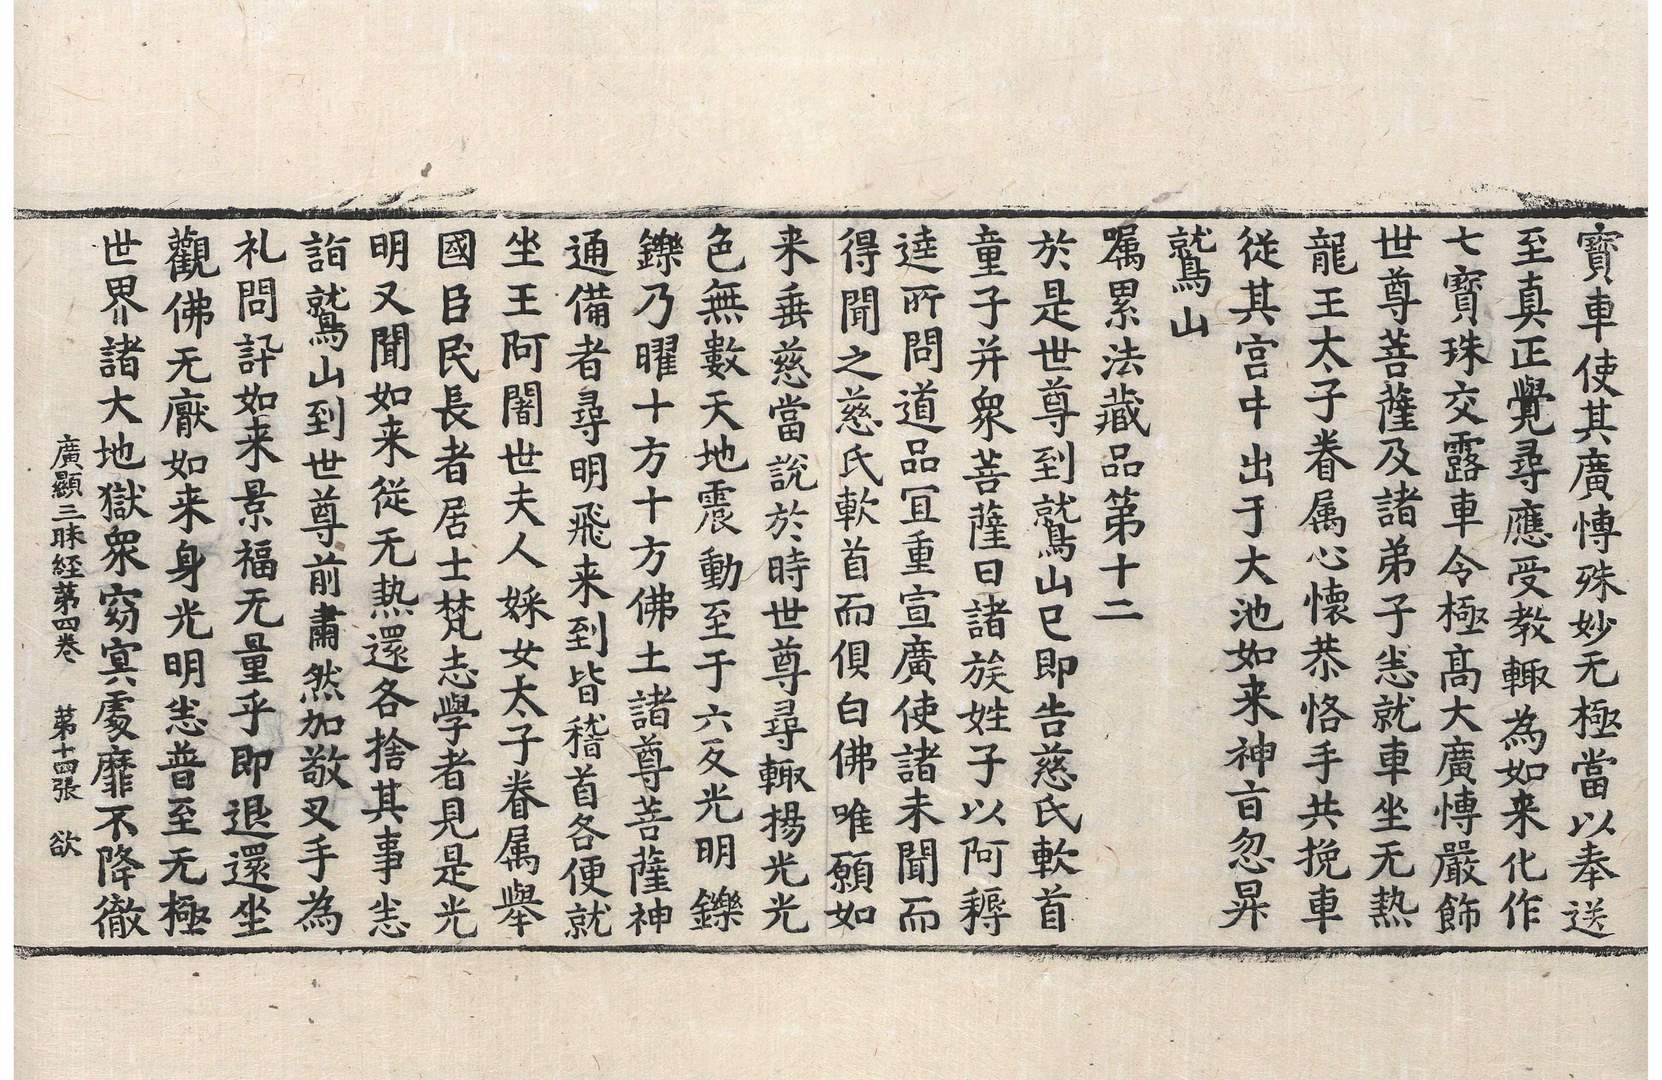 寶車使其廣慱殊妙无極當以奉送
至真正覺尋應受教輙為如来化作
七寶珠交露車令極髙大廣慱嚴飾
世尊菩薩及諸弟子㤙就車坐无熱
龍王太子眷属心懷恭恪手共挽車
從其宮中出于大池如来神㫖忽昇
鷲山
嘱累法藏品第十二
於是世尊到鷲山已即告慈氏軟首
童子并衆菩薩曰諸族姓子以阿耨
達所問道品冝重宣廣使諸未聞而
得聞之慈氏軟首而俱白佛唯願如
来垂慈當說於時世尊尋輙揚光光
色無數天地震動至于六反光明鑠
鑠乃曜十方十方佛土諸尊菩薩神
通備者尋明飛来到皆稽首各便就
坐王阿闍世夫人婇女太子眷属舉
國臣民長者居士梵志學者見是光
明又聞如来從无熱還各捨其事㤙
詣鷲山到世尊前肅然加敬叉手為
礼問訊如来景福无量乎即退還坐
觀佛无厭如来身光明㤙普至无極
世界諸大地獄衆窈冥處靡不降徹
廣顯三昧経苐四卷 苐十四張 欲